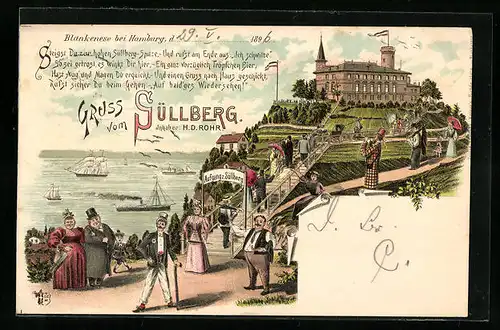 Blankenese bei Hamburg, d. 29. V. 1896
Steigst Du zur hohen Süllberg-Spitze - Und rufst am Ende aus „Ich schwitze“
So sei getrost es winkt Dir hier - Ein ganz vorzüglich Tröpfchen Bier,
Hast Aug' und Magen Du erquickt - Und einen Gruss nach Haus geschickt,
Rufst sicher Du beim Gehen - Auf baldges Wiedersehen!
Gruss
vom SÜLLBERG.
Inhaber: H.D. ROHR
Aufgang z. Süllberg